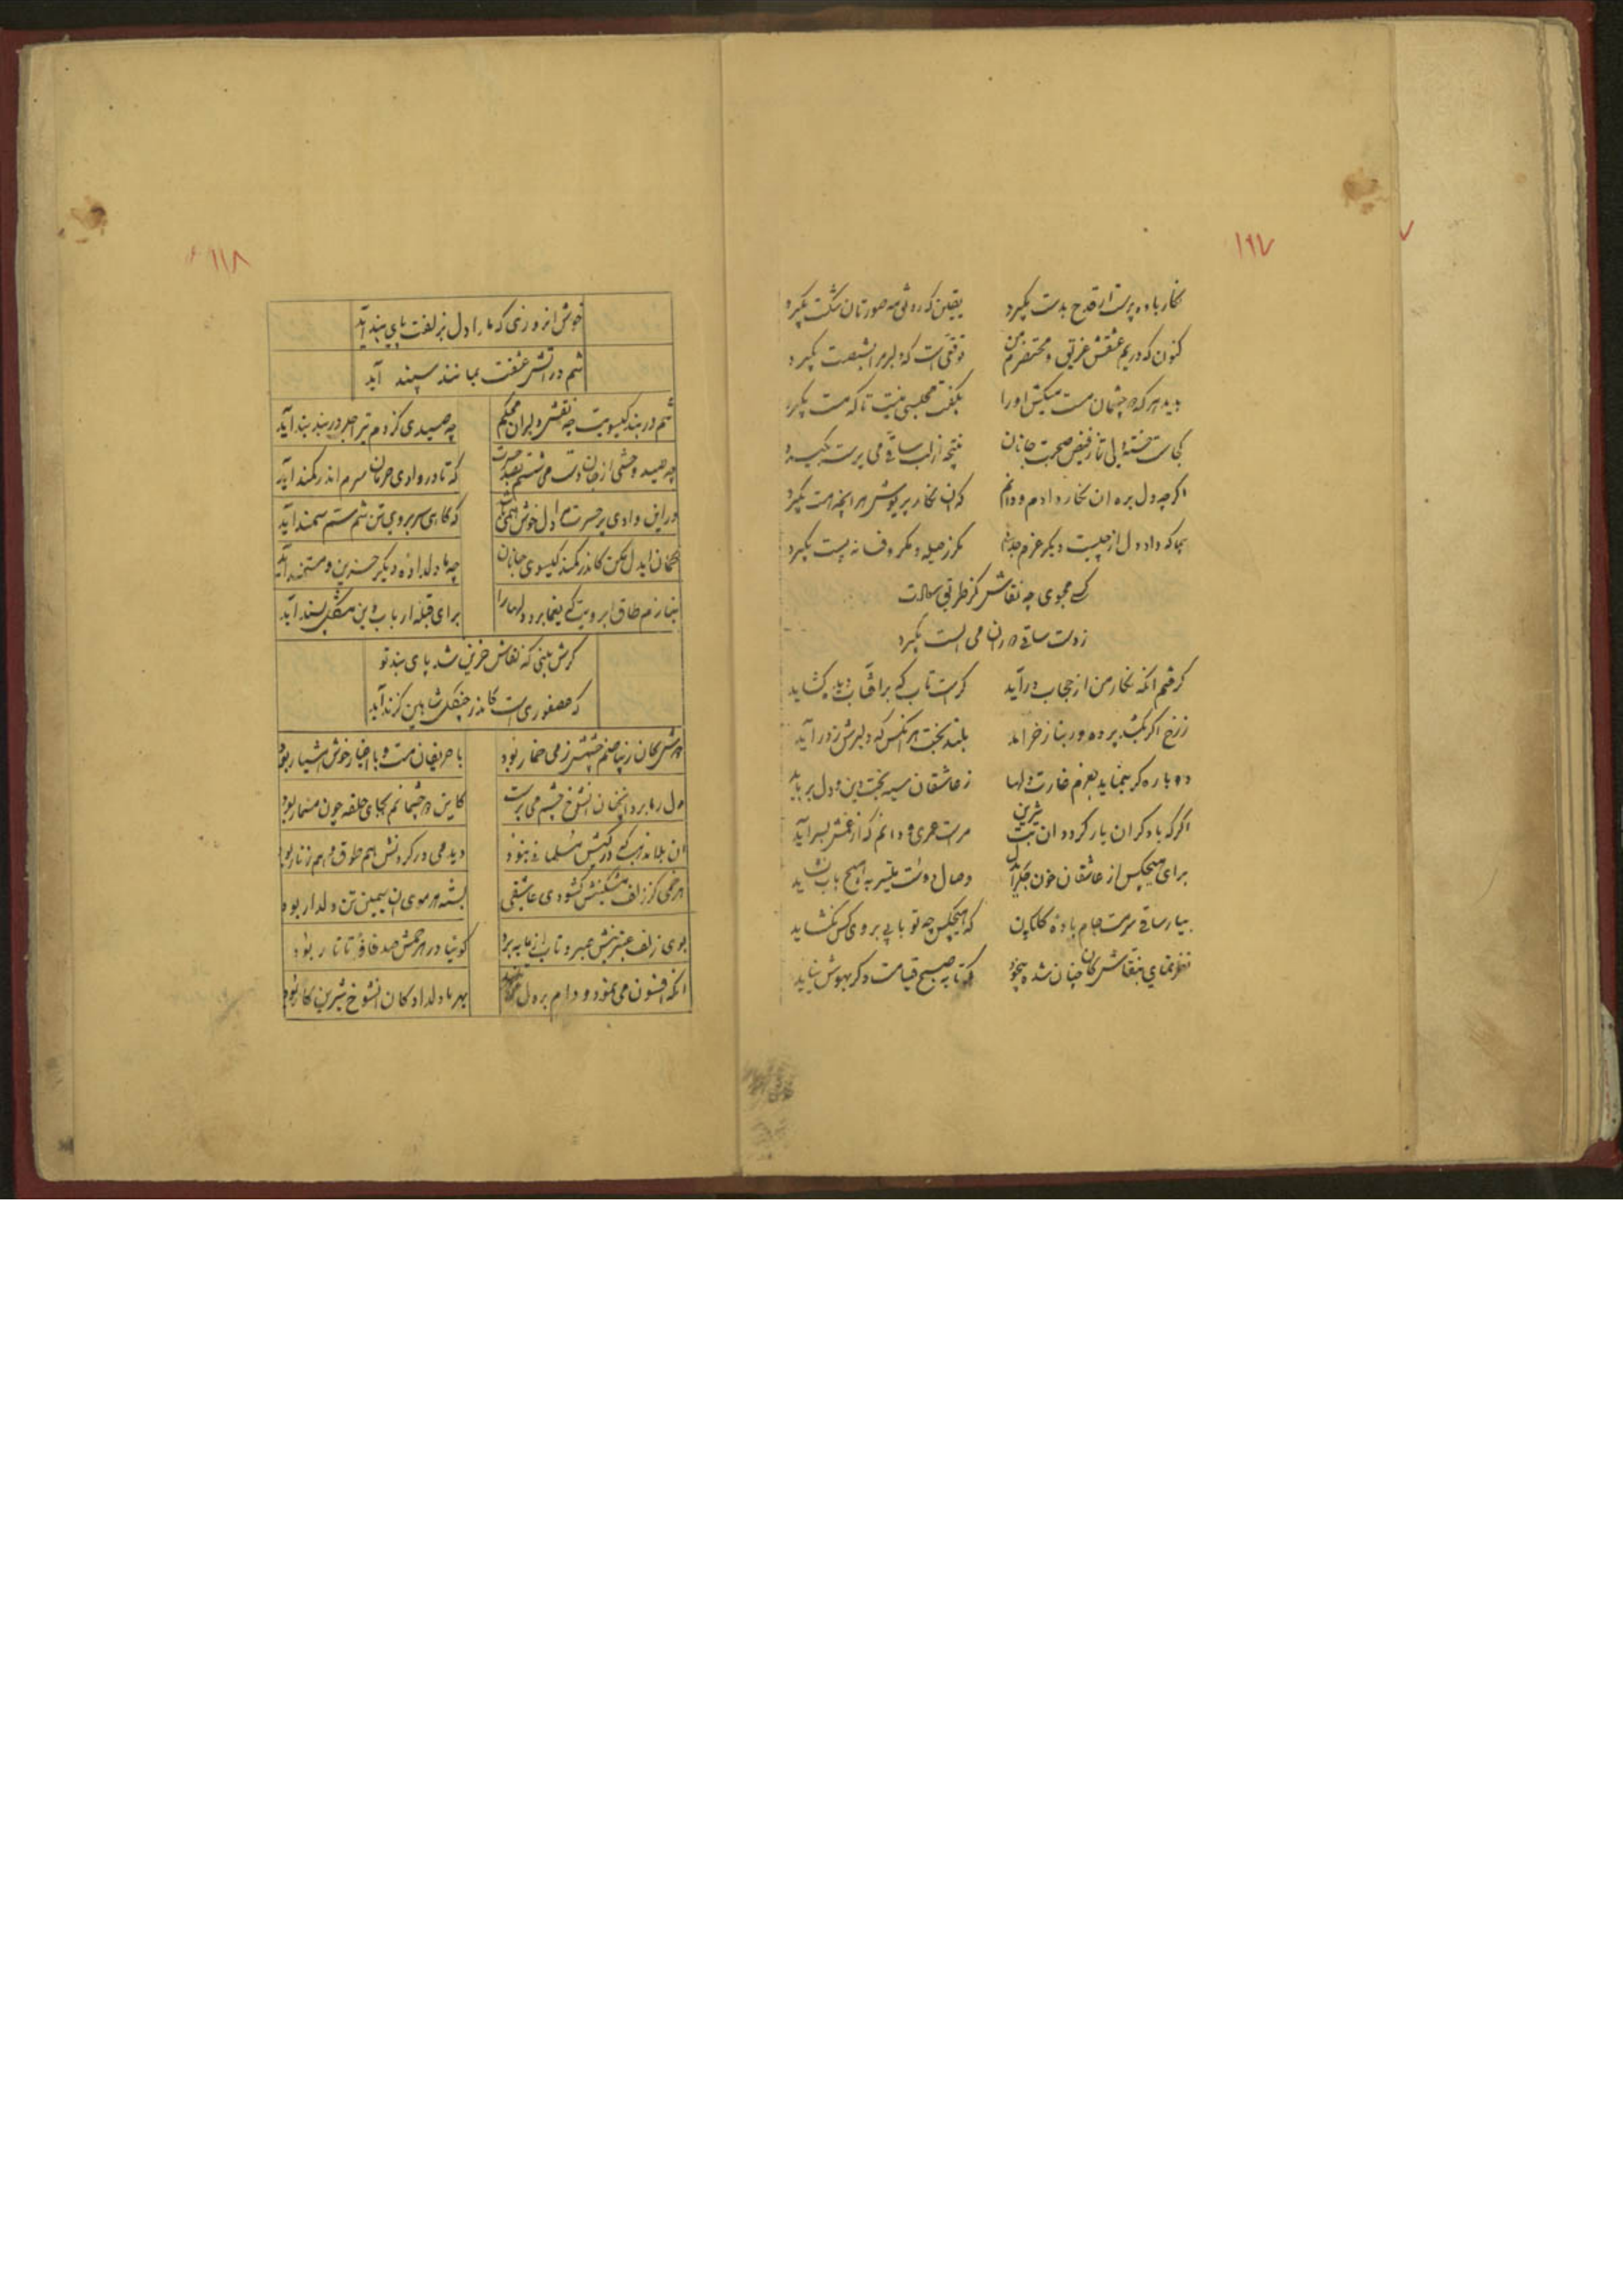 ۱۱۷
نگار باده پرست ار قدح بدست بگیرد یقین که رونق مه صورتان شکست بگیرد
کنون که در یم عشقش غریق و محتضرم من توقتی است که دلبر مرا بشصت بگیرد
بدید هر که چشمان مست میکش او را بگفت محتسبی نیست تا که مست بگیرد
کجاست خسته دلی تا ز فیض صحبت جانان نتیجه از لب ساقی می پرست بگیرد
اگر چه دل بره ان نگار دادم و دانم که ان نگار پریوش هر انچه هست بگیرد
بجا که داد دل از چیست دیگر عزم مگر ز حیله و مکر و فسانه پست بگیرد
کسی مجوی چه نقاش کز طریق
ز دست ساقی دوران می الست بگیرد
گرفتم انکه نگار من از حجاب درآید کراست تاب که بر افتاب دیده گشاید
ز رخ اگر بکشد پرده ور بناز خرامد بلند بخت هر انکس که دلبرش ز در آید
دوباره گر بنماید بعزم غارت دلها ز عاشقان سیه بخت دین و دل برباید
اگر که با دگران یار گردد ان بت شیرین مراست عمری و دانم که از غمش بسر آید
برای هیچکس از عاشقان خون جگر ای دل وصال دوست میسر به هیچ باب نشاید
بیار ساقی سرمست جام باده گلگون که هیچکس چه تو بابی بروی کس نگشاید
نظر نمای بنقاش کان چنان شده بیخود که تا به صبح قیامت دگر بهوش نیاید
۱۱۸
خوش انروزی که ما را دل بزلفت پای بند آید
شم در اتش عشقت بمانند سپند آید
شم در بند گیسویت چه نقش دلبران محکم چه صیدی کز دم تیر اجل در بند بند آید
چه صید وحشی از جان دست می شستم بصد حسرت که تا در وادی حرمان سرم اندر کمند آید
در این وادی پر حسرت مرا دل خوش همی باشد که گاهی سر بروی تن شم سم سمند آید
فغان ایدل مکن کاندر کمند گیسوی جانان چه ما دلداده دیگر حزین و مستمند آید
بنازم طاق ابرویت که یغما برد دلها را برای قبله ارباب دین مشکل پسند آید
گرش بینی که نقاش حزین شد پای بند تو
که عصفوری است کاندر چنگل شاهین گزند آید
دوش کان زیبا صنم چشمش ز می خمار بود با حریفان مست و با اغیار خوش هشیار بود
دل ز ما برد انچنان انشوخ چشم می پرست کاین دو چشمانم بجای حلقه چون مسمار بود
ان بلا مذهب که در کیشش مسلمانی نبود دیدمی در گردنش هم طوق و هم زنار بود
هر خمی کز زلف مشکینش گشودی عاشقی بسته هر موی ان سیمین تن دلدار بود
بوی زلف عنبرینش صبر و تاب از ما ببرد گوئیا در هر خمش صد نافهٔ تاتار بود
انکه افسون می نمود و دام بره دل بهر ما دلدادگان انشوخ شیرین کار بود